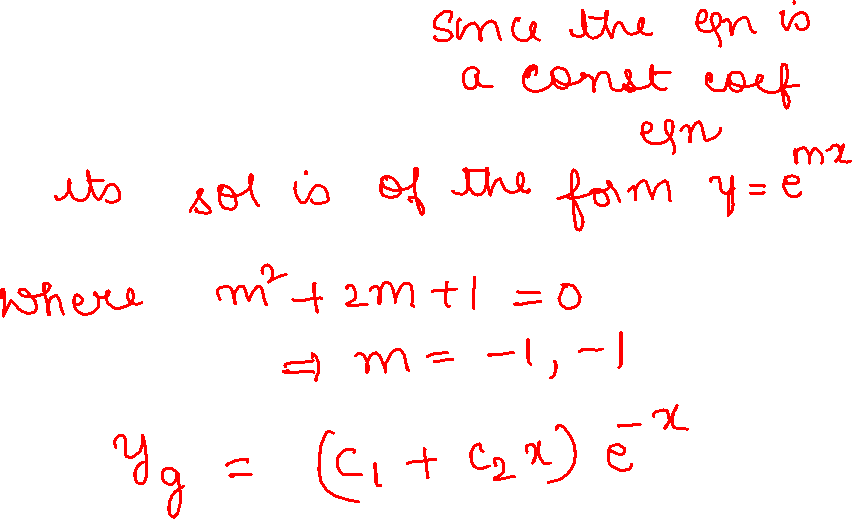 Since the eqn is
a const coef
eqn
its sol is of the form y = e^{mx}
where m² + 2m + 1 = 0
⇒ m = -1, -1
y_g = (c₁ + c₂x) e^{-x}